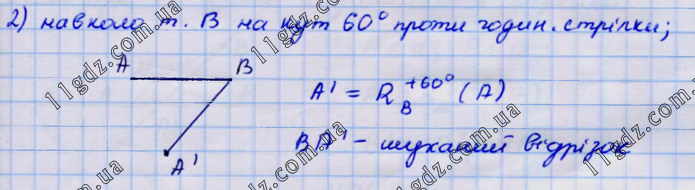 2) навколо т. В на кут 60° проти годин. стрілки;
A B
A' = R_B^{+60°} (A)
BA' – шуканий відрізок
A'
11gdz.com.ua 11gdz.com.ua 11gdz.com.ua 11gdz.com.ua 11gdz.com.ua